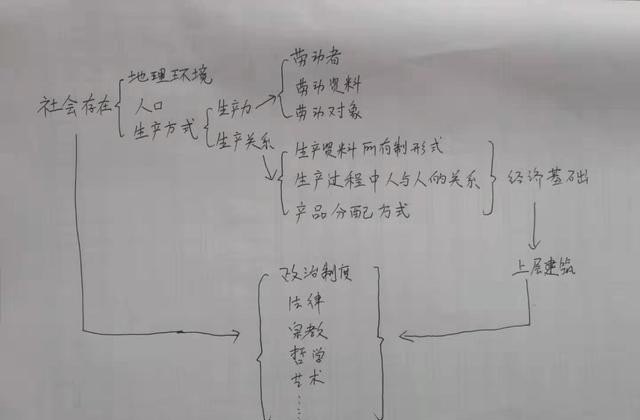 劳动者
地理环境
劳动资料
社会存在
人口
生产力
劳动对象
生产方式
生产关系
生产资料所有制形式
生产过程中人与人的关系
经济基础
产品分配方式
上层建筑
政治制度
法律
宗教
哲学
艺术
……